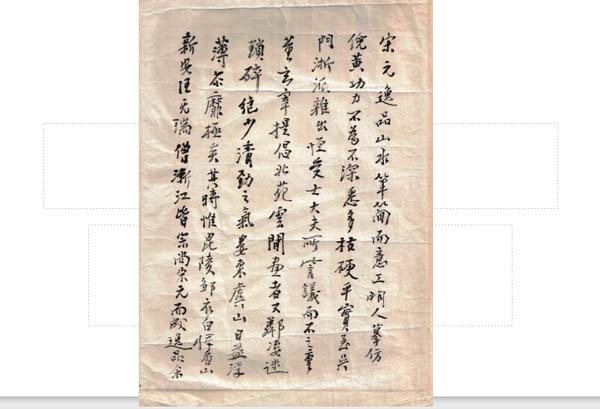 宋元逸品山水筆簡而意工明人摹仿
倪黃功力不為不深悉多枯硬平實至吳
門浙派雜出恆受士大夫所訾議而不之重
董玄宰提倡北苑雲間畫者又鄰淒迷
瑣碎絕少清勁之氣婁東虞山日益浮
薄靡極矣其時惟毘陵鄒衣白惲香山
新安汪无瑞僧漸江皆宗尚宋元而成逸品余